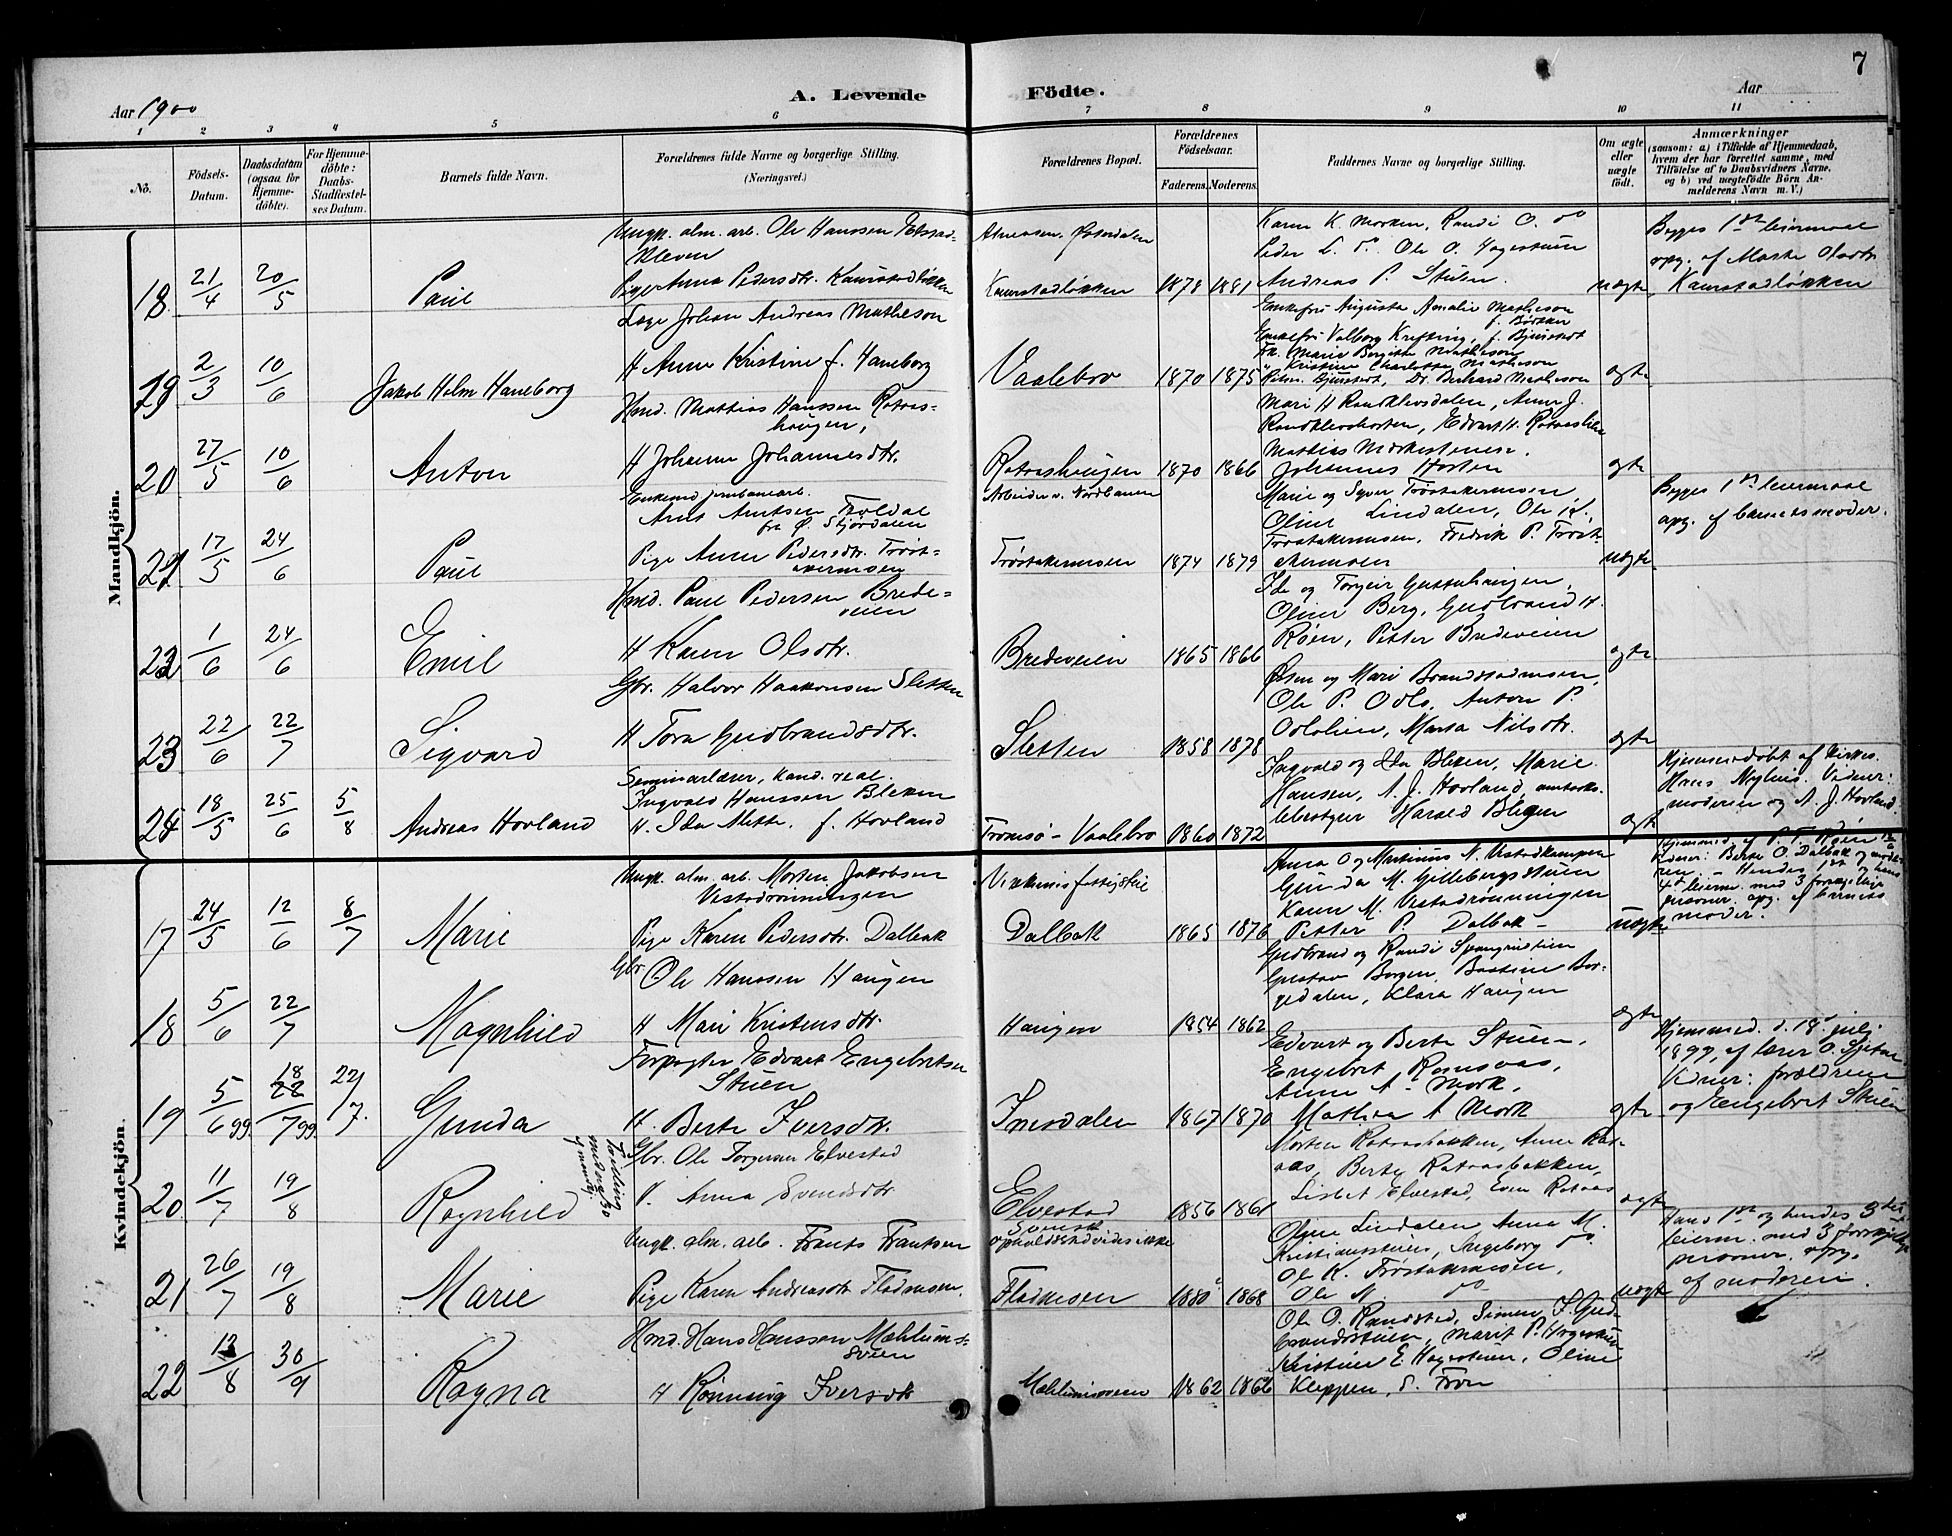 7
Aar 1900
A. Levende
Födte.
Aar
1 2 3 4 5 6 7 8 9 10 11
No.
Födsels-
Datum.
Daabsdatum
(ogsaa for
Hjemme-
döbte).
For Hjemme-
döbte:
Daabs-
Stadfæstel-
ses Datum.
Barnets fulde Navn.
Forældrenes fulde Navne og borgerlige Stilling.
(Næringsvei.)
Forældrenes Bopæl.
Forældrenes
Födselsaar.
Faderens. Moderens.
Faddernes Navne og borgerlige Stilling.
Om ægte
eller
uægte
födt.
Anmærkninger
(saasom: a) i Tilfælde af Hjemmedaab,
hvem der har forrettet samme, med
Tilföielse af to Daabsvidners Navne,
og b) ved uægtefödte Börn An-
melderens Navn m. V.)
Mandkjön.
18 21/4 20/5 Paul
Ungk. alm. arb. Ole Hanssen
Kleven
Pige Anna Pedersdtr. Kamstadløkken
Kamstadløkken 1878 1881
Karen K. Morken, Randi O. do
Peder L. do. Ole O. Hagestuen
Andreas P. Stuen.
uægte
Begges 1ste leiermaal
opg. af Marte Olsdtr.
Kamstadløkken
19 2/3 10/6 Jakob Holm Haneborg
Læge Johan Andreas Matheson
H Anna Kristine f. Haneborg
Vaalebro 1870 1875
Enkefru Augusta Amalie Matheson
Enkefru Valborg Krefting, f. Bjürstedt
Frk. Marie Birgitte Matheson
" Kristine Charlotte Matheson
Bjürstedt, Dr. Berhard Matheson
ægte
20 27/5 10/6 Anton
Hmd. Mattias Hanssen Rotaas-
haugen,
H Johanne Johannesdtr.
Rotaashaugen 1870 1866
Mari H Randklevsdalen, Anne J.
Randklevhorten, Edvart H. Rotaaslien
Mathias
Johannes Horten
ægte
21 17/5 24/6 Paul
Enkemd. jernbanearb.
Arnt Arntsen Foldal
fra Ø. Stjørdalen
Pige Anne Pedersdtr. Trøst-
akermoen
Arbeider v. Nordbanen
Trøstakermoen 1874 1879
Marie og Syver Trøstakermoen,
Oline Lindalen, Ole K.
Trøstakermoen, Fredrik P. Trøst-
akermoen
uægte
Begges 1ste leiermaal
opg. af barnets moder.
22 1/6 24/6 Emil
Hmd. Paul Pedersen Brede-
veien
H Karen Olsdtr.
Bredeveien 1865 1866
Ida og Torgeir
Oline Berg, Gudbrand H.
Røen, Petter Bredeveien
ægte
23 22/6 22/7 Sigvard
Gbr. Halvor Haakonsen Sletten
H Tora Gudbrandsdtr.
Sletten 1858 1878
og Mari Brandstadmoen,
Ole P. Odlo, Anton P.
Odlolien, Marta Nilsdtr.
ægte
24 18/5 25/6 5/8 Andreas Hovland
Seminarlærer, kand. real.
Ingvald Hanssen Bleken
H. Ida Mette, f. Hovland
Tromsø - Vaalebro 1860 1872
Ingvald og Ida Bleken, Marie
Hansen, A. J. Hovland,
Harald Blegen
ægte
Hjemmedøbt af kirkes.
Hans Nyhus. Vidner:
moderen og A. J. Hovland
Kvindekjön.
17 24/5 12/6 8/7 Marie
Ungk. alm. arb. Morten Jakobsen
Vestadrønningen
Pige Karen Pedersdtr. Dalbak
Dalbak 1865 1876
Anna og Martinus N. Vestadkampen
Gunda M. Gillebergstuen
Karen M. Vestadrønningen
Petter P. Dalbak
uægte
Hjemmed. af P. T. Røen 12/6
Vidner: Berte O. Dalbak og mode-
ren. - Hendes 1ste og hans
4de leierm. med 3 forskjellige
personer. opg. af barnets
moder.
18 5/6 22/7 Magnhild
Gbr. Ole Hanssen Haugen
H Mari Kristensdtr.
Haugen 1854 1862
Gudbrand og Randi
Gustav Borgen, Bastine Bor-
gedalen, Klara Haugen
ægte
19 5/6 99 18/7 99 22/7. Gunda
Forpagter Edvart Engebretsen
Stuen
H. Berte Iversdtr.
1867 1870
Edvart og Berte Stuen,
Engebret Ramsaas,
Anne A. Mork,
Mathea A Mork
ægte
Hjemmed. d. 18. juli
1899, af lærer O.
Vidner: forældrene
og Engebret Stuen
20 11/7 19/8 Ragnhild
Gbr. Ole Torgersen Elvestad
H. Anna Svendsdtr.
Elvestad 1856 1861
Morten Rotaasbakken, Anne Rot-
aas, Berte Rotaasbakken,
Lisbet Elvestad, Even Rotaas
ægte
21 26/7 19/8 Marie
Ungk. alm. arb. Frants Frantsen
Pige Karen Andreasdtr. Flademoen.
Svensk
opholdssted vides ikke
Flademoen 1880 1868
Oline Lindalen, Anna M.
Kristiansstuen, Ingeborg do
Ole K. Trøstakermoen,
Ole M. do
uægte
Hans 1ste og hendes 3die
leierm. med 3 forskjellige
personer. opg.
af moderen.
22 13/8 30/9 Ragna
Hmd. Hans Hanssen Mæhlum-
sveen
H Rønnaug Iversdtr
Mæhlumsveen 1862 1866
Ole O. Randstad, Simen J. Gud-
brandsstuen, Marit P. Hagestuen
Kristian E. Hagestuen, Oline
Kleppen, S. Fron